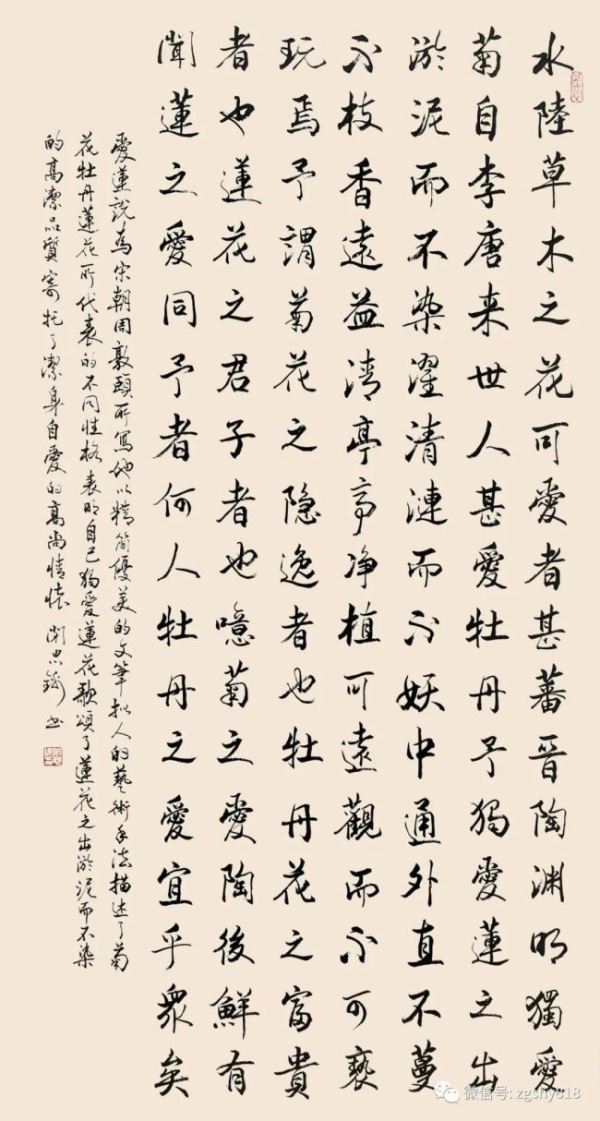 水陸草木之花可愛者甚蕃晉陶渊明獨愛
菊自李唐来世人甚愛牡丹予独愛蓮之出
淤泥而不染濯清漣而不妖中通外直不蔓
不枝香遠益清亭亭净植可遠觀而不可褻
玩焉予謂菊花之隐逸者也牡丹花之富貴
者也蓮花之君子者也噫菊之愛陶後鮮有
聞蓮之愛同予者何人牡丹之愛宜乎眾矣
愛蓮說為宋朝周敦頤所寫他以精简優美的文筆拟人的藝術手法描述了菊
花牡丹蓮花所代表的不同性格表明自己独愛蓮花歌頌了蓮花之出淤泥而不染
的高潔品質寄托了潔身自愛的高尚情懷 书
微信号: